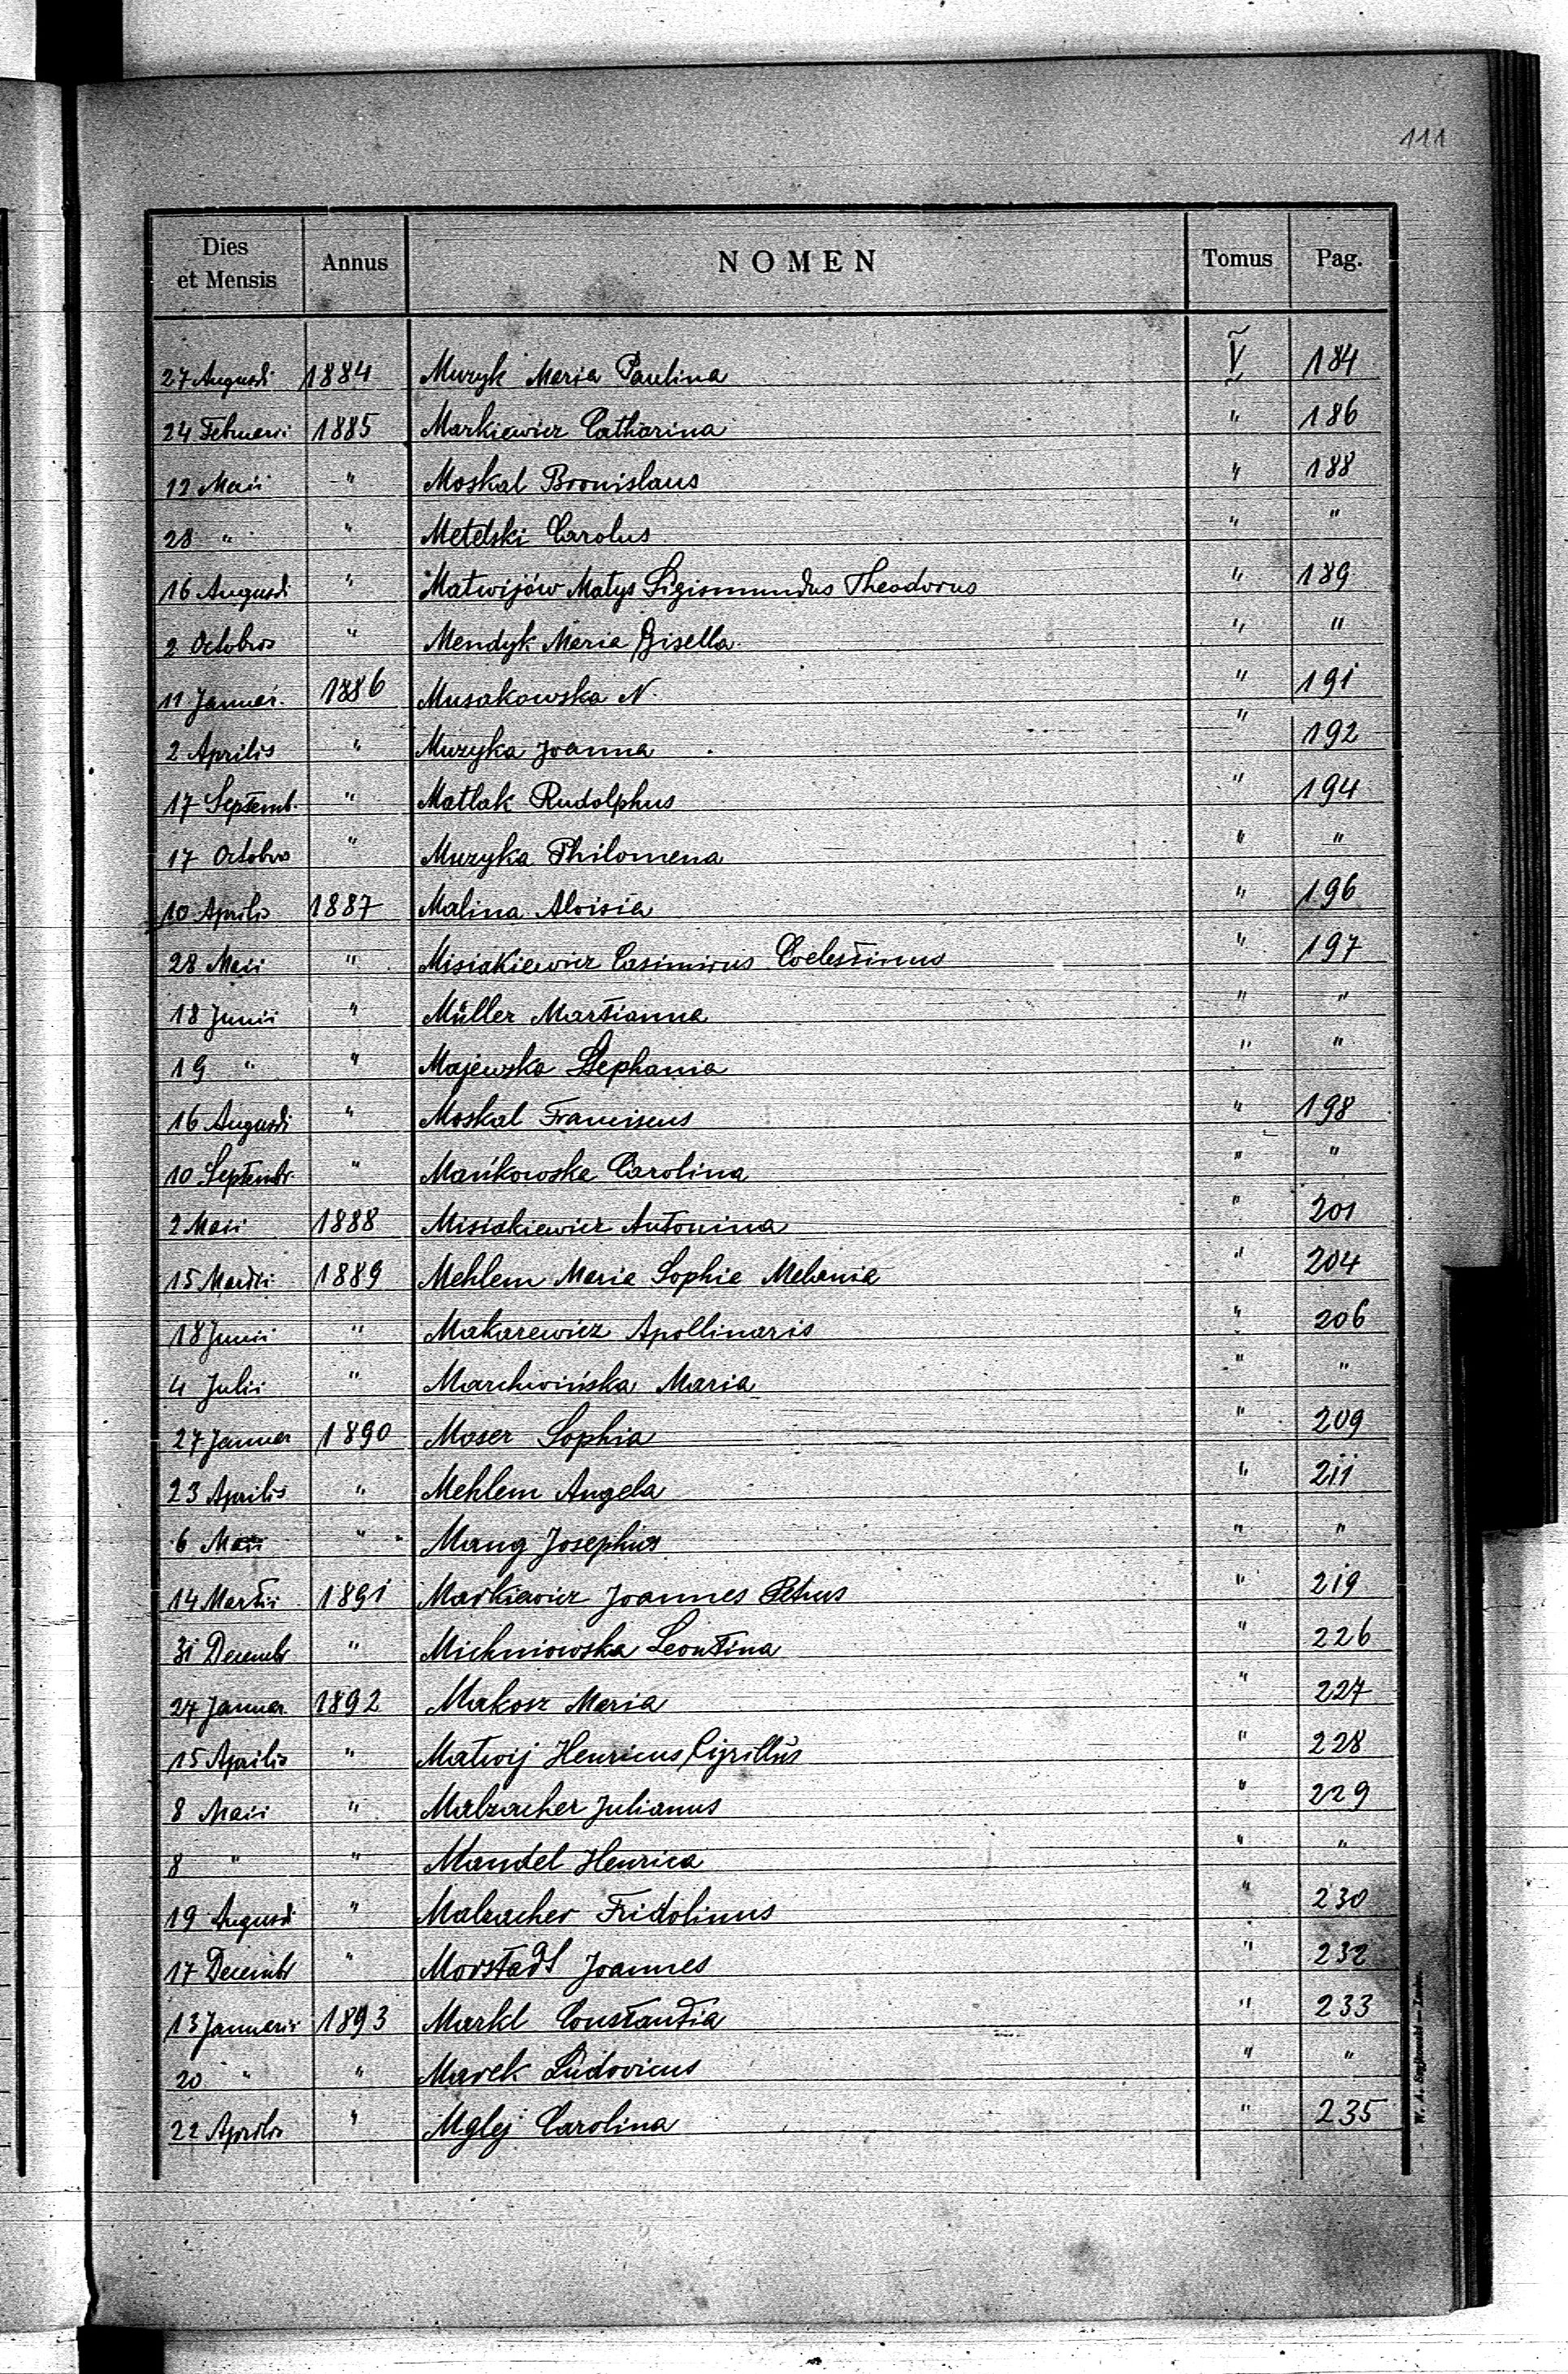 111
Dies et Mensis Annus NOMEN Tomus Pag.
27 Augusti 1884 Muzyk Maria Paulina V 184
24 Februarii 1885 Markiewicz Catharina " 186
12 Maii " Moskal Bronislaus " 188
28 " " Metelski Carolus " "
16 Augusti " Matwijów Matys Sigismundus Theodorus " 189
2 Octobris " Mendyk Maria Gisella " "
11 Januar. 1886 Musakowska N. " 191
2 Aprilis " Muzyka Joanna " 192
17 Septemb. " Matlak Rudolphus " 194
17 Octobris " Muzyka Philomena " "
10 Aprilis 1887 Malina Aloisia " 196
28 Maii " Misiakiewicz Casimirus Coelestinus " 197
18 Junii " Müller Martianna " "
19 " " Majewska Stephania " "
16 Augusti " Moskal Franciscus " 198
10 Septembr. " Mańkowska Carolina " "
2 Maii 1888 Misiakiewicz Antonina " 201
15 Martii 1889 Mehlem Maria Sophia Melania " 204
18 Junii " Makarewicz Apollinaris " 206
4 Julii " Marchwińska Maria " "
27 Januar 1890 Moser Sophia " 209
23 Aprilis " Mehlem Angela " 211
6 Maii " Mang Josephus " "
14 Martii 1891 Markiewicz Joannes Petrus " 219
31 Decembr " Michniowska Leontina " 226
27 Januar 1892 Makosz Maria " 227
15 Aprilis " Matwij Henricus Cyrillus " 228
8 Maii " Malzacher Julianus " 229
8 " " Mandel Henrica " "
19 Augusti " Malzacher Fridolinus " 230
17 Decembr " Morstadt Joannes " 232
13 Januarii 1893 Markl Constantia " 233
20 " " Marek Ludovicus " "
22 Aprilis " Mglej Carolina " 235